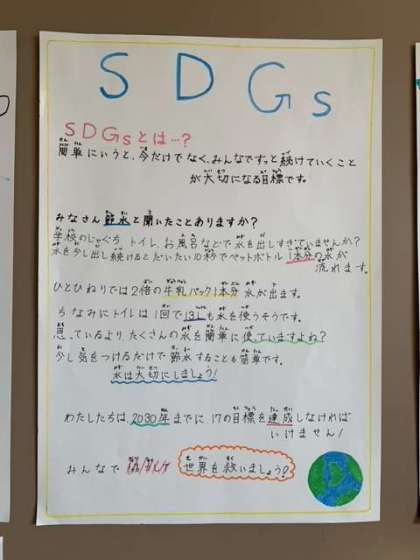 SDGs
SDGsとは…?
簡単にいうと、今だけでなく、みんなでずっと続けていくこと
が大切になる目標です。
みなさん節水と聞いたことありますか?
学校のじゃぐち、トイレ、お風呂などで水を出しすぎていませんか?
水を少し出し続けるとだいたい10秒でペットボトル1本分の水が
流れます。
ひとひねりでは2倍の牛乳パック1本分水が出ます。
ちなみにトイレは1回で13Lも水を使うそうです。
思っているよりたくさんの水を簡単に使っていますよね?
少し気をつけるだけで節水することも簡単です。
水は大切にしましょう!
わたしたちは、2030年までに17の目標を達成しなければ
いけません!
みんなで
世界を救いましょう?